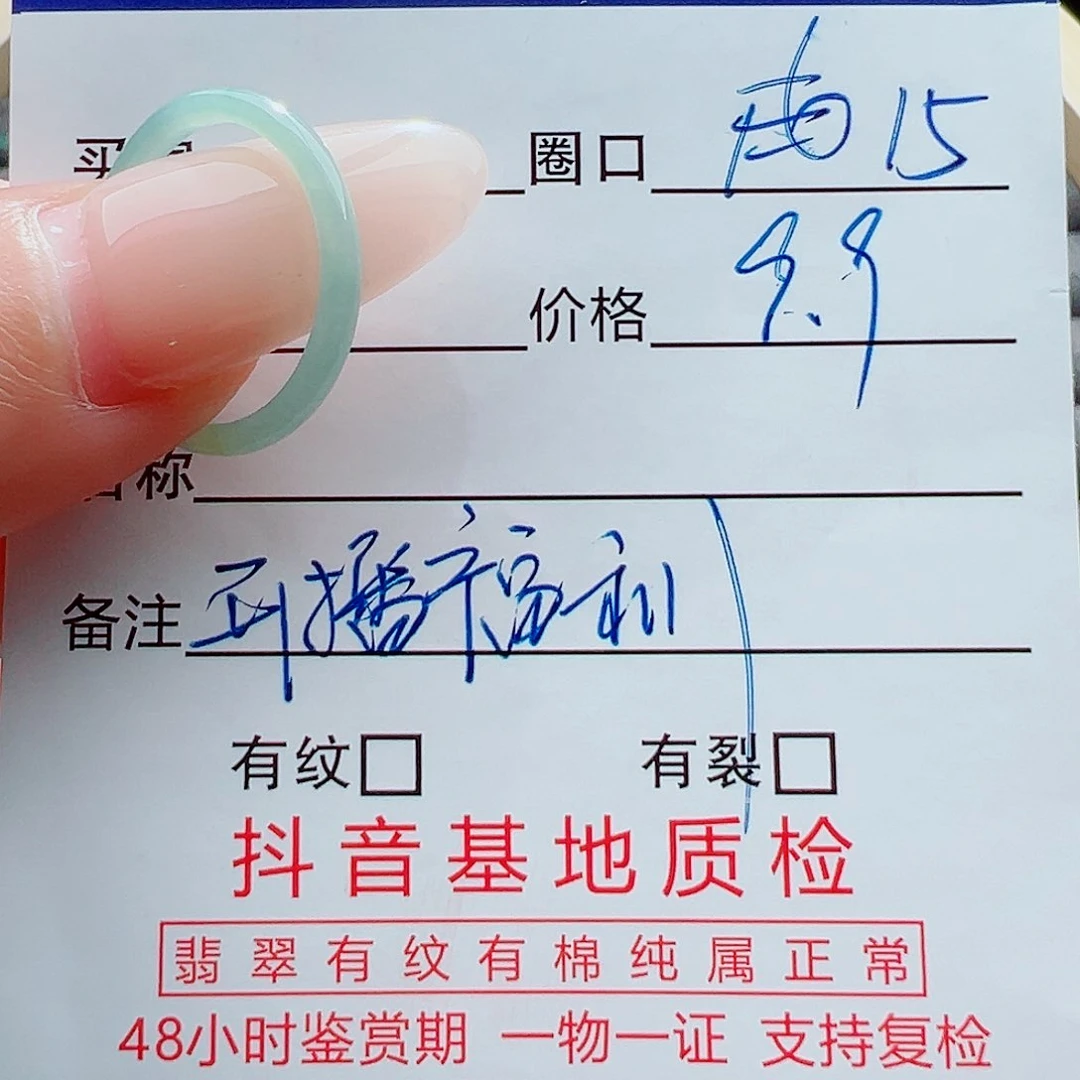 买 圈口 南15
价格 9.9
称
备注 开播福利
有纹 有裂
抖音基地质检
翡翠有纹有棉纯属正常
48小时鉴赏期 一物一证 支持复检